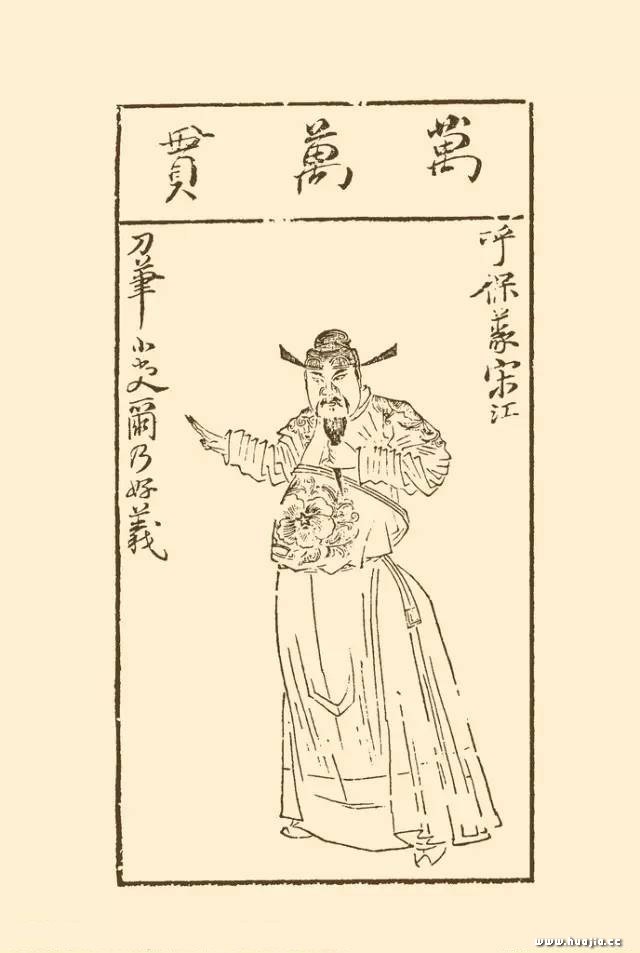 萬萬貫
呼保義宋江
刀筆小吏爾乃好義
www.huajia.cc